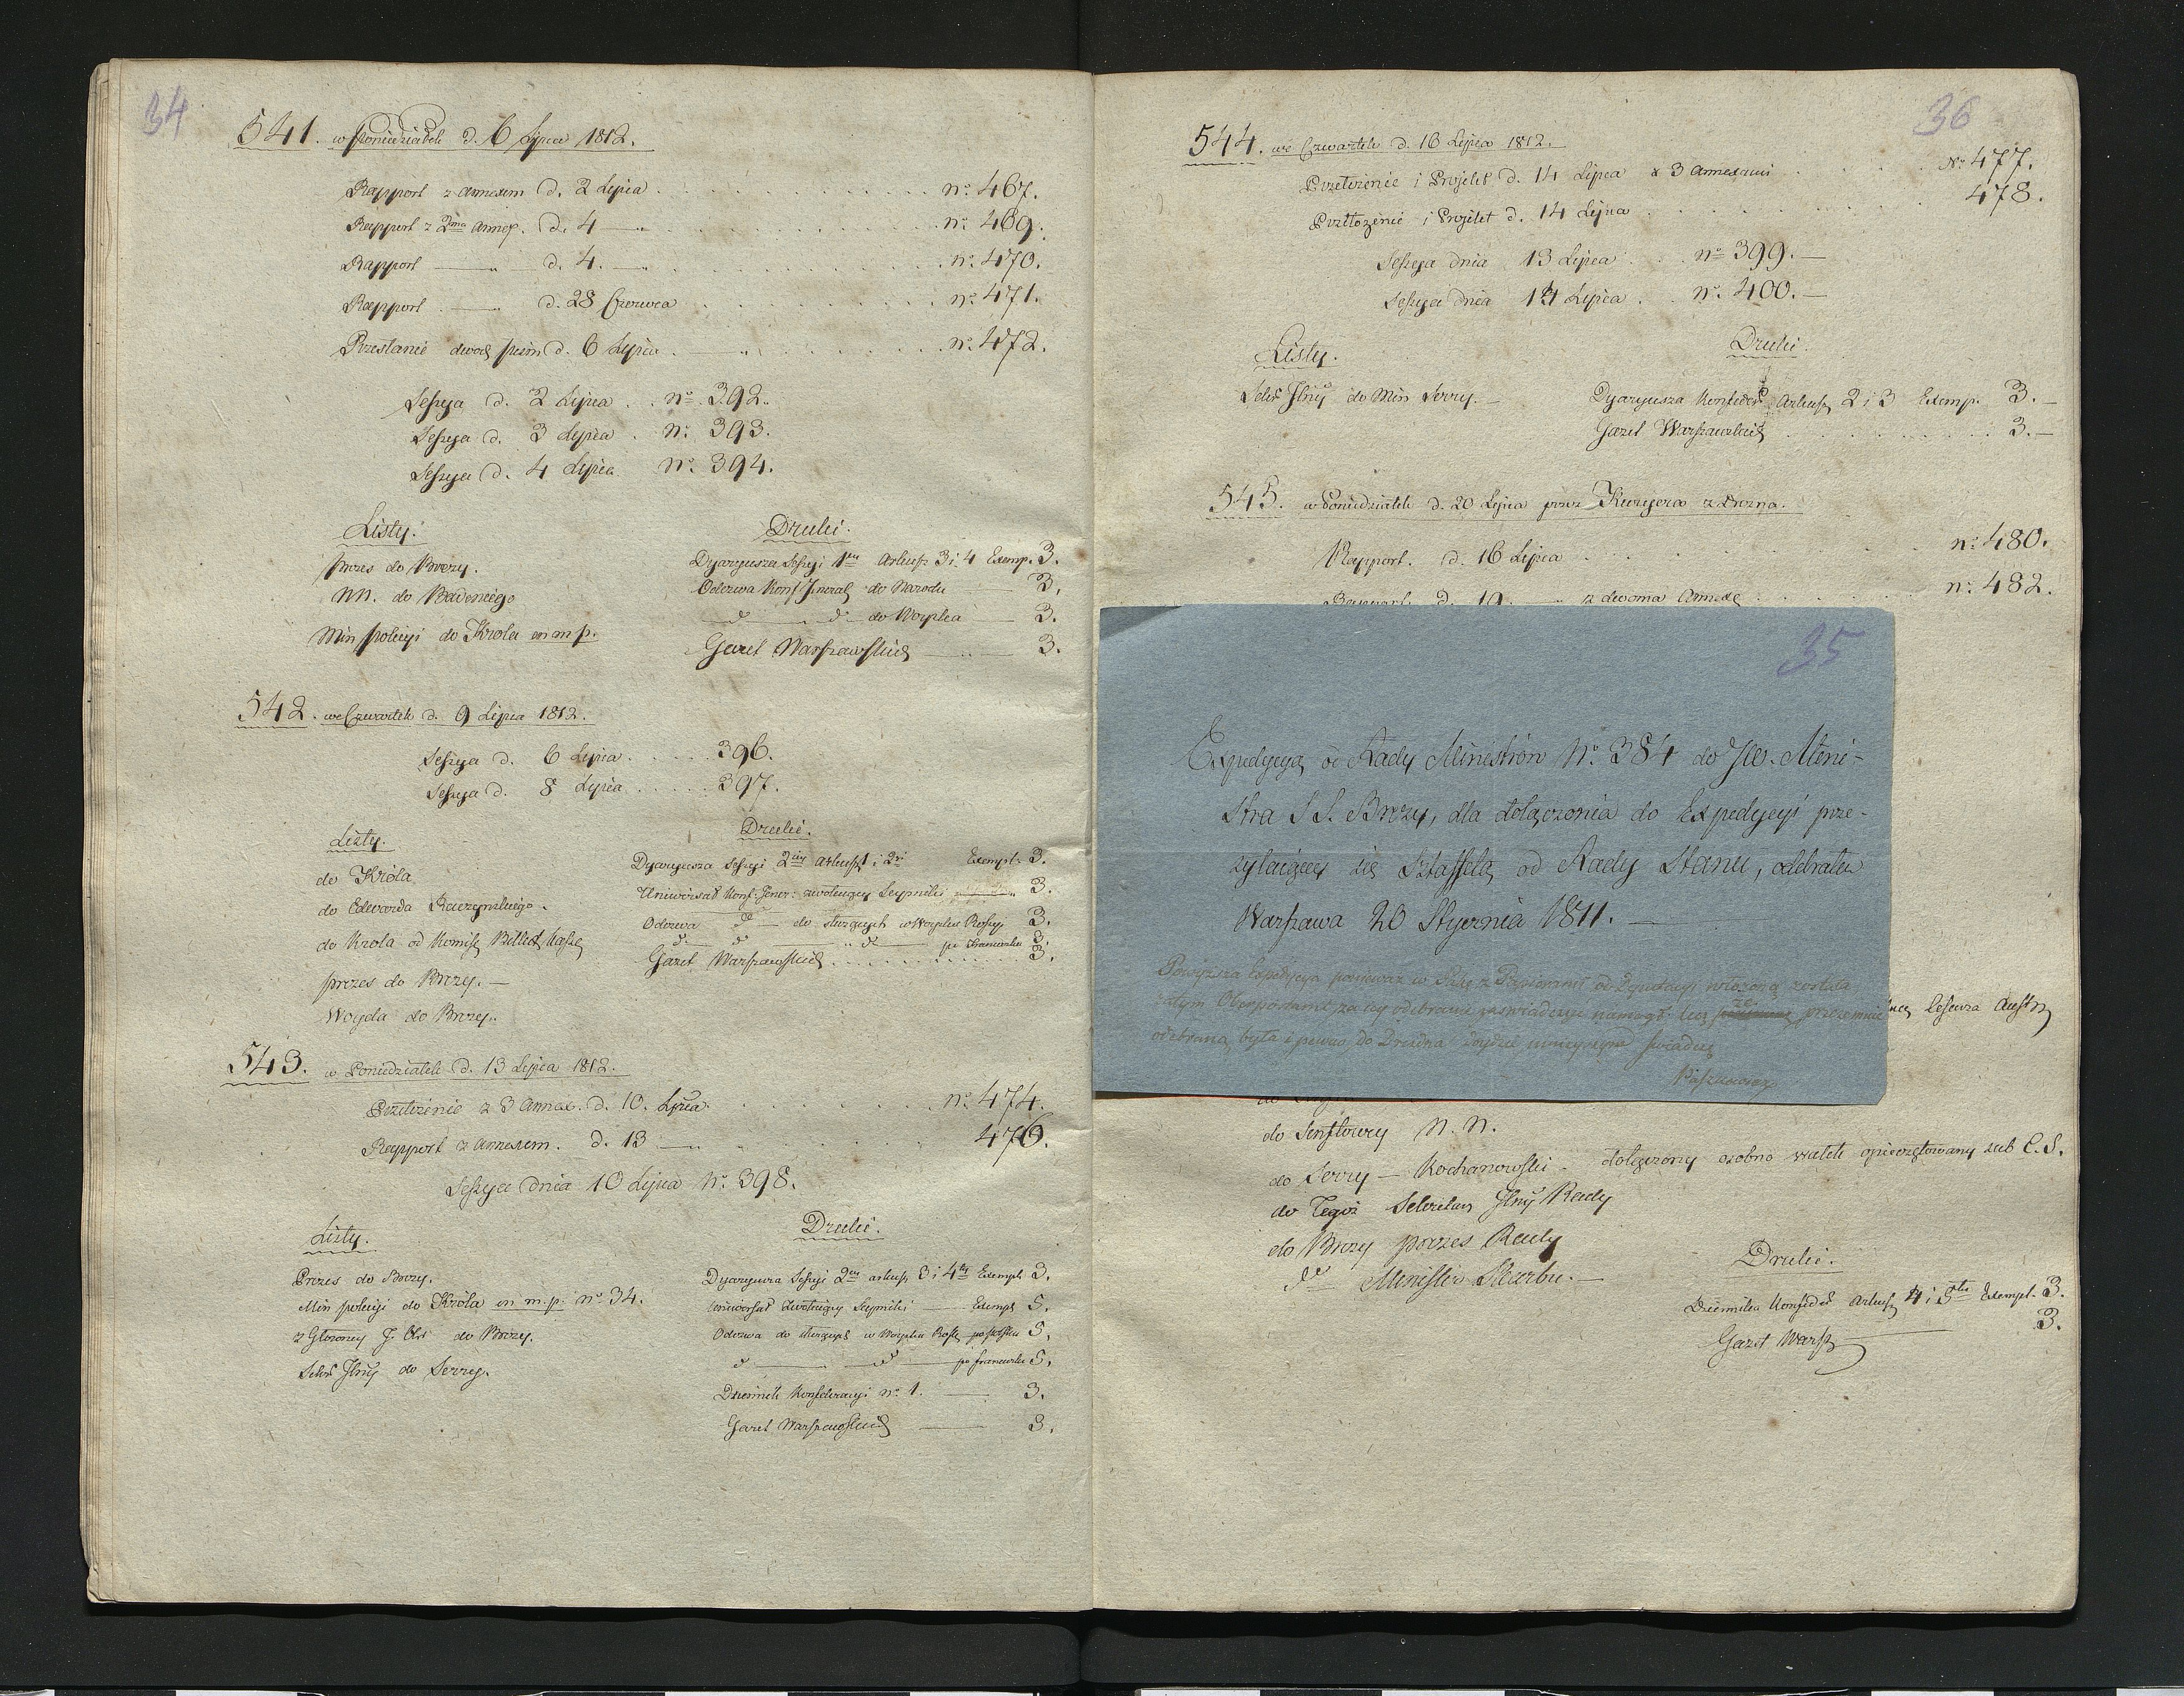 34
541. w Poniedziałek d. 6 Lipca 1812.
Rapport z annexem d. 2 Lipca . . . nº 467.
Rapport z 2ma annex. d. 4 — „ . . . nº 469.
Rapport — „ d. 4. — „ . . . nº 470.
Rapport — „ d. 28 Czerwca . . . nº 471.
Przesłanie dwóch pism d. 6 Lipca . . . nº 472.
Sessya d. 2 Lipca . . nº 392.
Sessya d. 3 Lipca . nº 393.
Sessya d. 4 Lipca nº 394.
Listy.
Prezes do Brezy.
NN. do Badeniego
Min policyi do Króla m m p.
Druki.
Dyaryusza Sessyi 1ey Arkusz 3 i 4 Exemp. 3.
Odezwa Konf Jneral do Narodu — 3.
d° — d° — do Woyska — 3.
Gazet Warszawskich — 3.
542. we Czwartek d. 9 Lipca 1812.
Sessya d. 6 Lipca . . . . 396.
Sessya d. 8 Lipca . . . . 397.
Listy.
do Króla
do Edwarda Raczynskiego.
do Krola od Komiss
Prezes do Brezy. —
Woyda do Brezy.
Druki.
Dyaryusza Sessyi 2iey arkusz 1 i 2i Exempl. 3.
Uniwersał Konf: Jener: zwołuiący Seymiki 3.
Odezwa d° — do służących w Woysku Rossyi 3.
d° — d° — „ d° — po francuzku 3.
Gazet Warszawskich . . . . 3.
543. w Poniedziałek d. 13 Lipca 1812.
Przełożenie z 3 Annex. d. 10. Lipca . . . nº 474.
Rapport z annexem. d. 13 — „ . . . 476.
Sessya dnia 10 Lipca Nº 398.
Listy.
Prezes do Brezy.
Min policyi do Króla m m. p. nº 34.
z Głowney do Brezy.
Sekr Jlny do Serry.
Druki.
Dyaryusza Sessyi 2ey arkusz 3 i 4ty Exempl. 3.
Uniwersał Zwołuiący Seymiki — Exempl 5.
Odezwa do służących w Woysku Rossy po polsku 5.
d° — d° — po francuzku 5.
Dziennik Konfederacyi nº 1. — 3.
Gazet Warszawskich — 3.
36
544. we Czwartek d. 16 Lipca 1812.
Przełożenie i Projekt d. 14 Lipca z 3 Annexami . . . Nº 477.
Przełożenie i Projekt d. 14 Lipca . . . 478.
Sessya dnia 13 Lipca . . nº 399. —
Sessya dnia 14 Lipca . . nº 400. —
Listy.
Sekr Jlny do Min Serry. —
Druki.
Dyaryusza Konfeder Arkusz 2 i 3 Exemp. 3. —
Gazet Warszawskich . . . 3. —
545. w Poniedziałek d. 20 Lipca przez Kuryera z Drezna.
Rapport. d. 16 Lipca . . . nº 480.
Rapport. d. 19. — „ z dwoma Annexy . . . nº 482.
35
Expedycyą od Rady Ministrów Nº 384 do JW. Mini-
stra S S. Brezy, dla dołączenia do Expedycyi prze-
syłaiącey się Sztaffetą od Rady Stanu, odebrałem
Warszawa 20 Stycznia 1811. —
Powyższa Expedycya ponieważ w Pakę z Pismami od Deputacyi włożoną została
zatym Oberpostamt za iey odebranie zaświadczyć niemógł. lecz że przezemnie
odebraną była i pewno do Drezna doydzie ninieyszym świadczę
do Senftowny N. N.
do Serry — Kochanowski — dołączony osobno pakiet opieczętowany sub C. S.
do Tegoż Sekretarz Jlny Rady
do Brezy Prezes Rady
d° — Minister Skarbu. —
Druki.
Dziennika Konfeder Arkusz 4 i 5te Exempl. 3.
Gazet Warsz — 3.